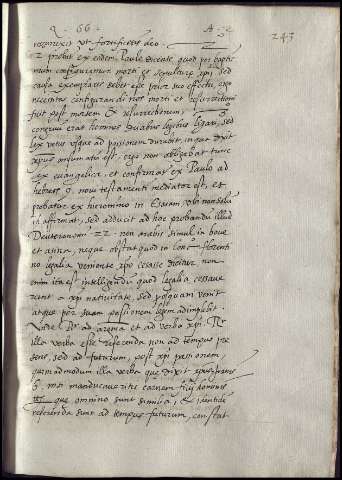 Q. 66. A. 2
243
2 probat ex eodem Paulo dicente, quod per baptis
mum configuramur morti et sepulturæ xpi, sed
causa exemplaris debet esse prior suo effectu, ergo
necessitas configurandi nos morti et resurrectioni
fuit post mortem et resurrectionem; 3
congruum erat homines duabus legibus ligari, sed
lex vetus usque ad passionem durabit, in qua dixit
ergo non obligabat tunc
ex euangelica, et confirmat ex Paulo ad
hebreos 9. noui testamenti mediator est, et
probatur ex hieronimo in
id affirmat, sed adducit ad hoc probandum illud
Deuteronomi 22. non arabis simul in boue
et asino, neque obstat quod in conc. florenti
no legalia veniente xpo cessasse dicitur non
enim ita est intelligendum quod legalia cessaue
rint a xpi natiuitate, sed posquam venit
atque per suam passionem legem adimplebit.
Unde ad et ad verba xpi
illa verba esse referenda non ad tempus præ
sens, sed ad futurum, post xpi passionem,
quemadmodum illa verba que dixit
6. nisi manducaueritis carnem filij hominis
que omnino sunt similia, et
referenda sunt ad tempus futurum, constat